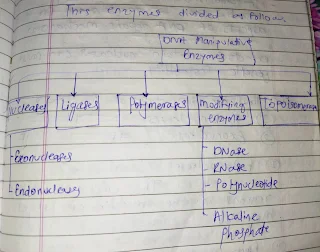 This enzymes divided as follow
DNA Manipulative
Enzymes
Nucleases
Ligases
Polymerases
Modifying
enzymes
Topoisomerase
- Exonucleases
- Endonucleases
- DNase
- RNase
- Polynucleotide
- Alkaline
Phosphate